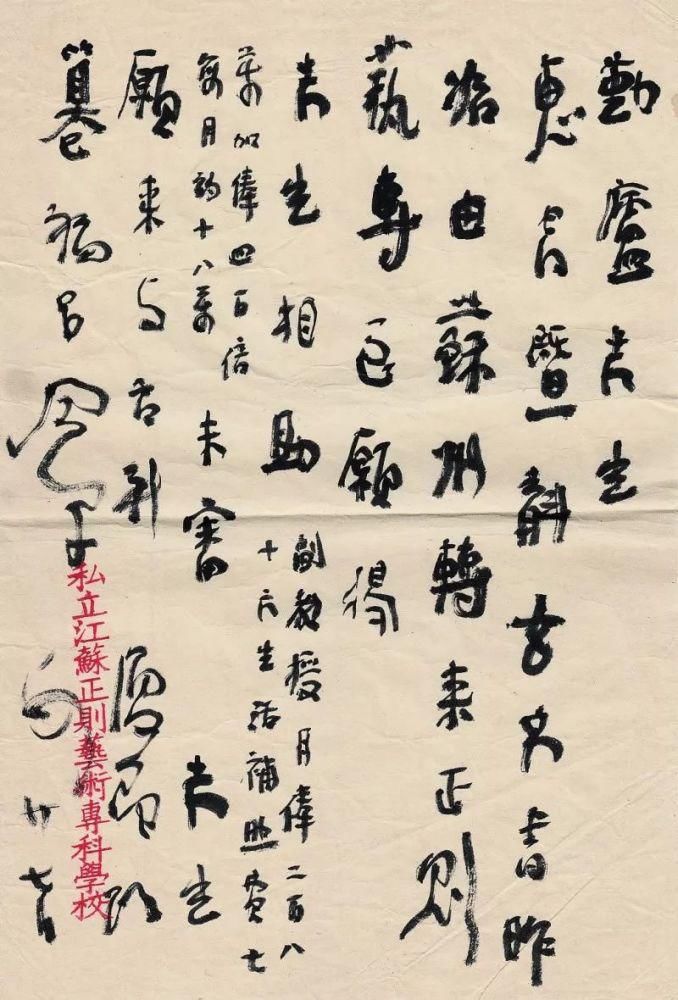 勤廬先生
惠書暨斠玄兄書昨
始由蘇州轉來正則
藝專亟願得
先生相助
副教授月俸二百八
十元生活補助費七
萬加俸四百倍
每月約十八萬
未審
先生
願來与否
復即頌
纂福 呂鳳子
私立江蘇正則藝術專科學校